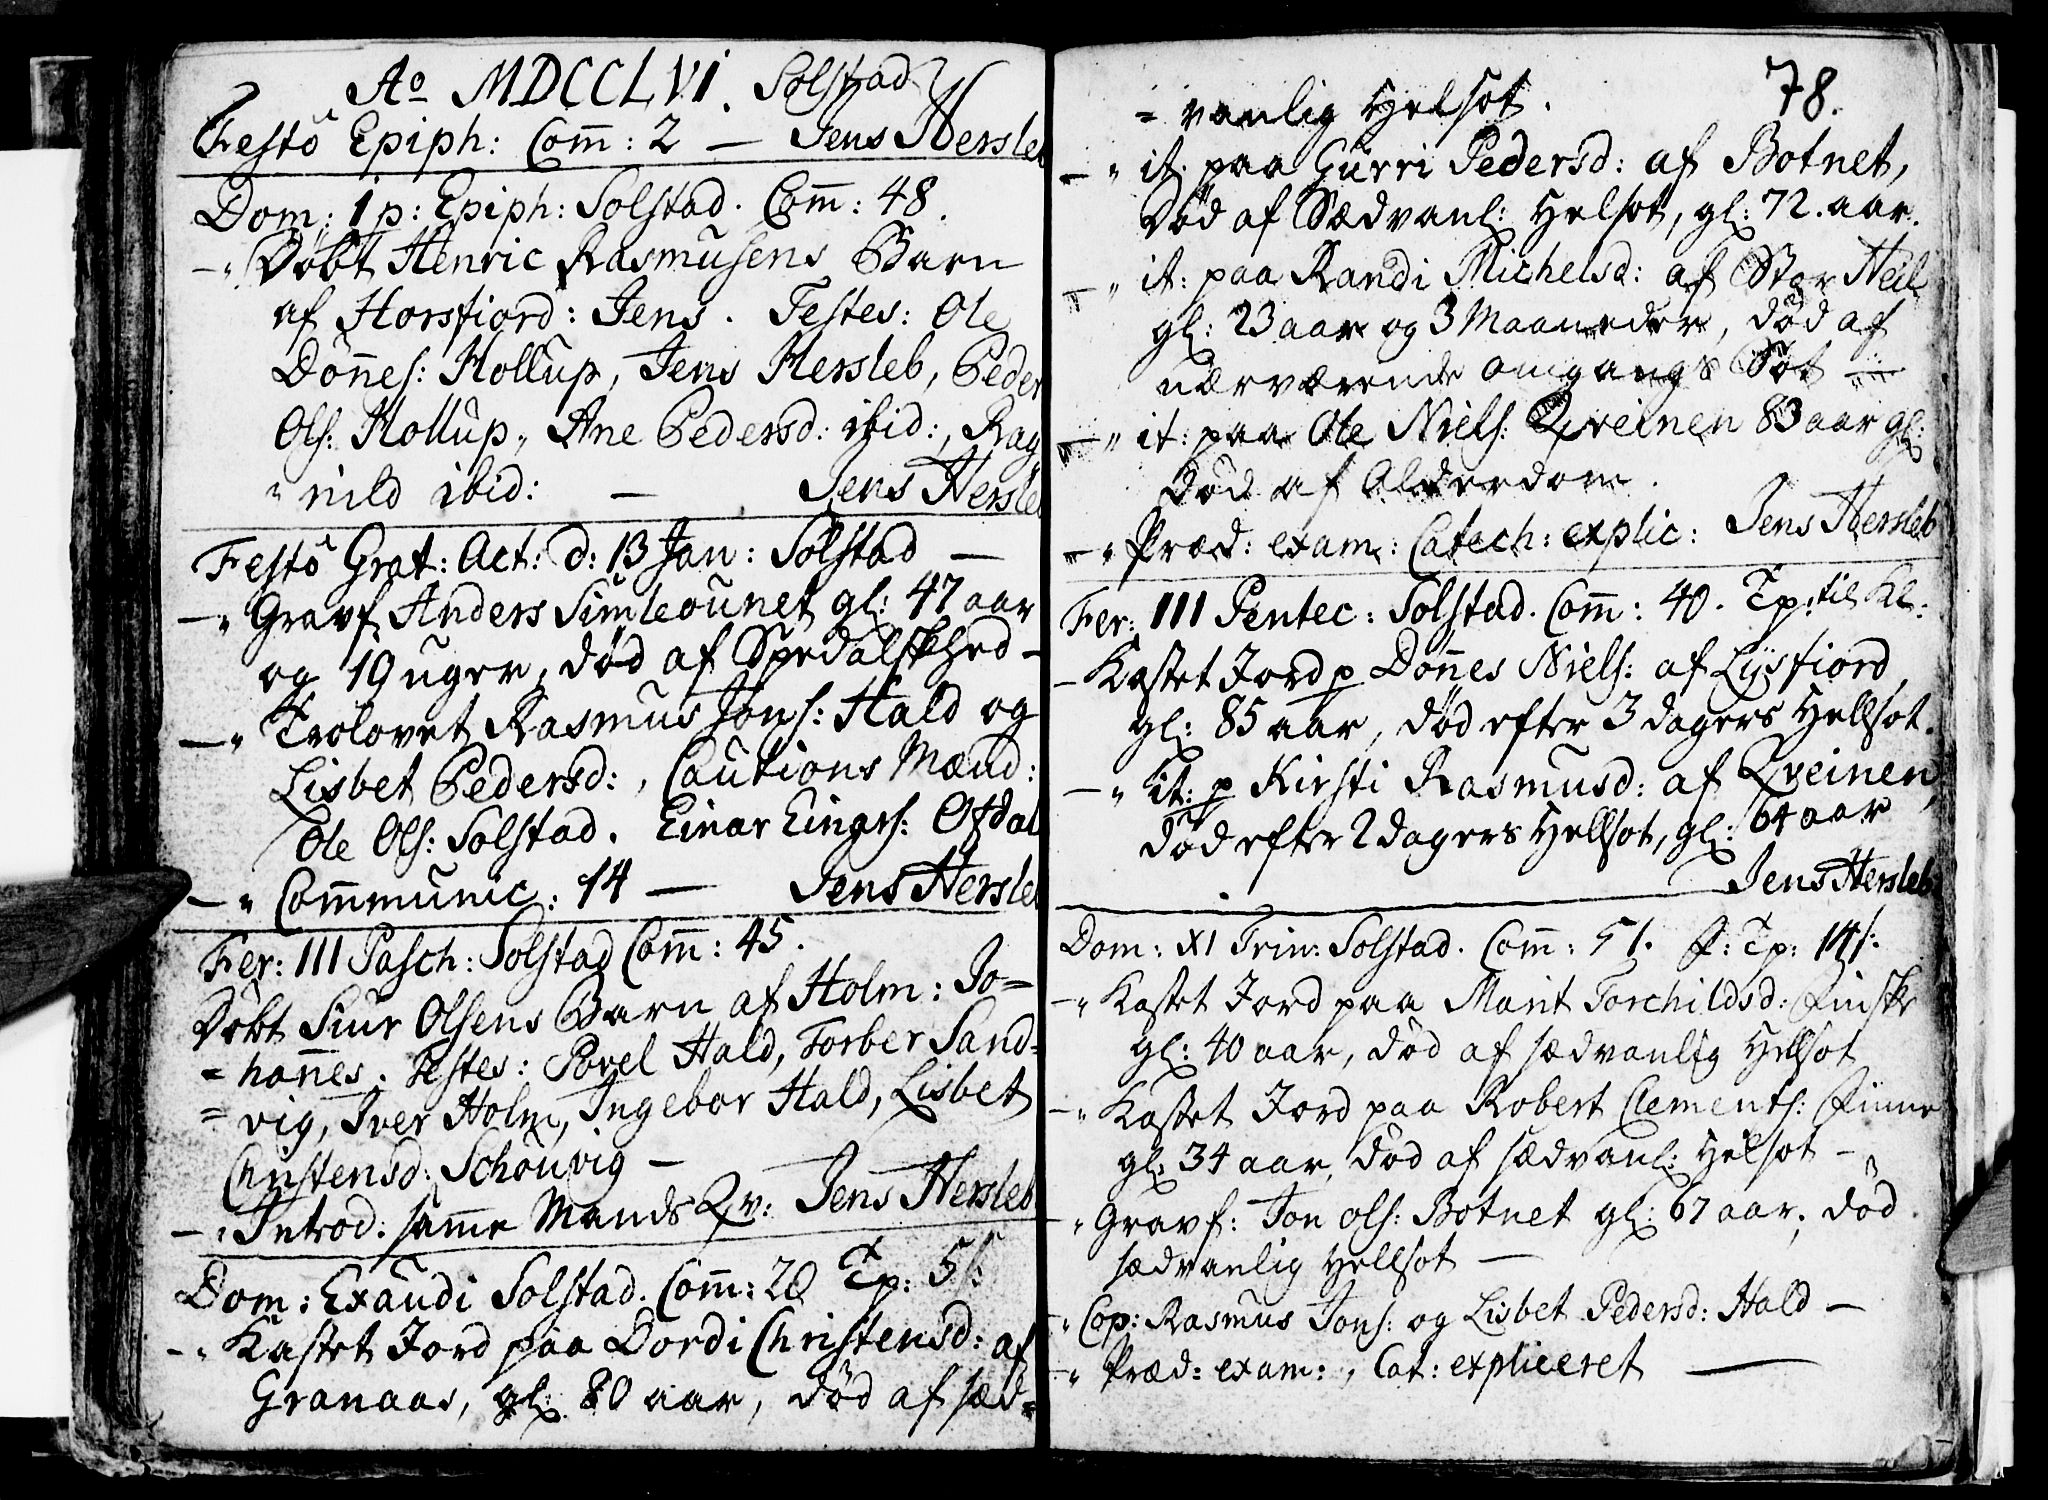 Ao MDCCLVI. Solstad
Festô Epiph: Com̄: 2 — Jens Hersleb
Dom: 1 p: Epiph: Solstad. Com̄: 48.
—" Döbt Henric Rasmusens Barn
af Horsfiord: Jens. Testes: Ole
Dönnes: Hollup, Jens Hersleb, Peder
Ols: Hollup, Ane Pedersd: ibid:, Rag
" nild ibid: — Jens Hersleb
Festô Grat: Act: d: 13 Jan: Solstad —
—" Gravf Anders Simleöunet gl: 47 aar
og 19 uger, död af Spedalskhed —
—" Trolovet Rasmus Jons: Hald og
Lisbet Pedersd:, Cautions Mænd:
Ole Ols: Solstad. Einar Einars: Ofdal
—" Com̄munic: 14 — Jens Hersleb
Fer: III Pasch: Solstad Com̄: 45.
Döbt Siur Olsens Barn af Holm: Jo=
= han̄es. Testes: Povel Hald, Torber Sand=
= vig, Iver Holm, Ingebor Hald, Lisbet
Christensd: Schouvig —
—" Introd: sam̄e Mands Qv: Jens Hersleb
Dom: Exaudi Solstad. Com̄: 20 Tp: 5 s:
—" Kastet Jord paa Dordi Christensd: af
Granaas, gl: 80 aar, död af sæd=
78.
= vanlig Helsot.
—" it: paa Gurri Pedersd: af Botnet,
död af Sædvanl: Helsot, gl: 72. aar.
—" it: paa Randi Michelsd: af Stor Heil
gl: 23 aar og 3 Maaneder, död af
nærværende omgangs Sot —
—" it: paa Ole Niels: Qveinen 83 aar gl:
död af Alderdom.
—" Præd: exam: Catech: explic: Jens Hersleb
Fer: III Pentec: Solstad. Com̄: 40. Tp: til Kl:
— Kastet Jord p Dön̄es Niels: af Lysfiord
gl: 85 aar, död efter 3 dagers Hellsot.
—" it: p Kirsti Rasmusd: af Qveinen,
död efter 2 dagers Hellsot, gl: 64 aar
Jens Hersleb
Dom: XI Trin: Solstad. Com̄: 51. Tp: 14 s:
—" Kastet Jord paa Marit Torchildsd: Finske
gl: 40 aar, död af sædvanlig Hellsot
—" Kastet Jord paa Robert Clements: Finne
gl: 34 aar, död af sædvanl: Helsot —
—" Gravf: Jon Ols: Botnet gl: 67 aar, död
sædvanlig Hellsot —
—" Cop: Rasmus Jons: og Lisbet Pedersd: Hald —
—" Præd: exam:, Cat: expliceret —